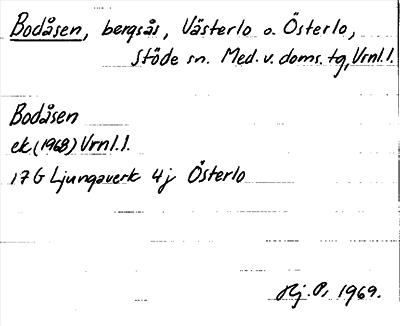 Bodåsen, bergsås, Västerlo o. Österlo,
Stöde sn. Med. v. doms. tg, Vrnl. l.
Bodåsen
ek. (1968) Vrnl. l.
17 G Ljungaverk 4 j Österlo
Hj. P, 1969.